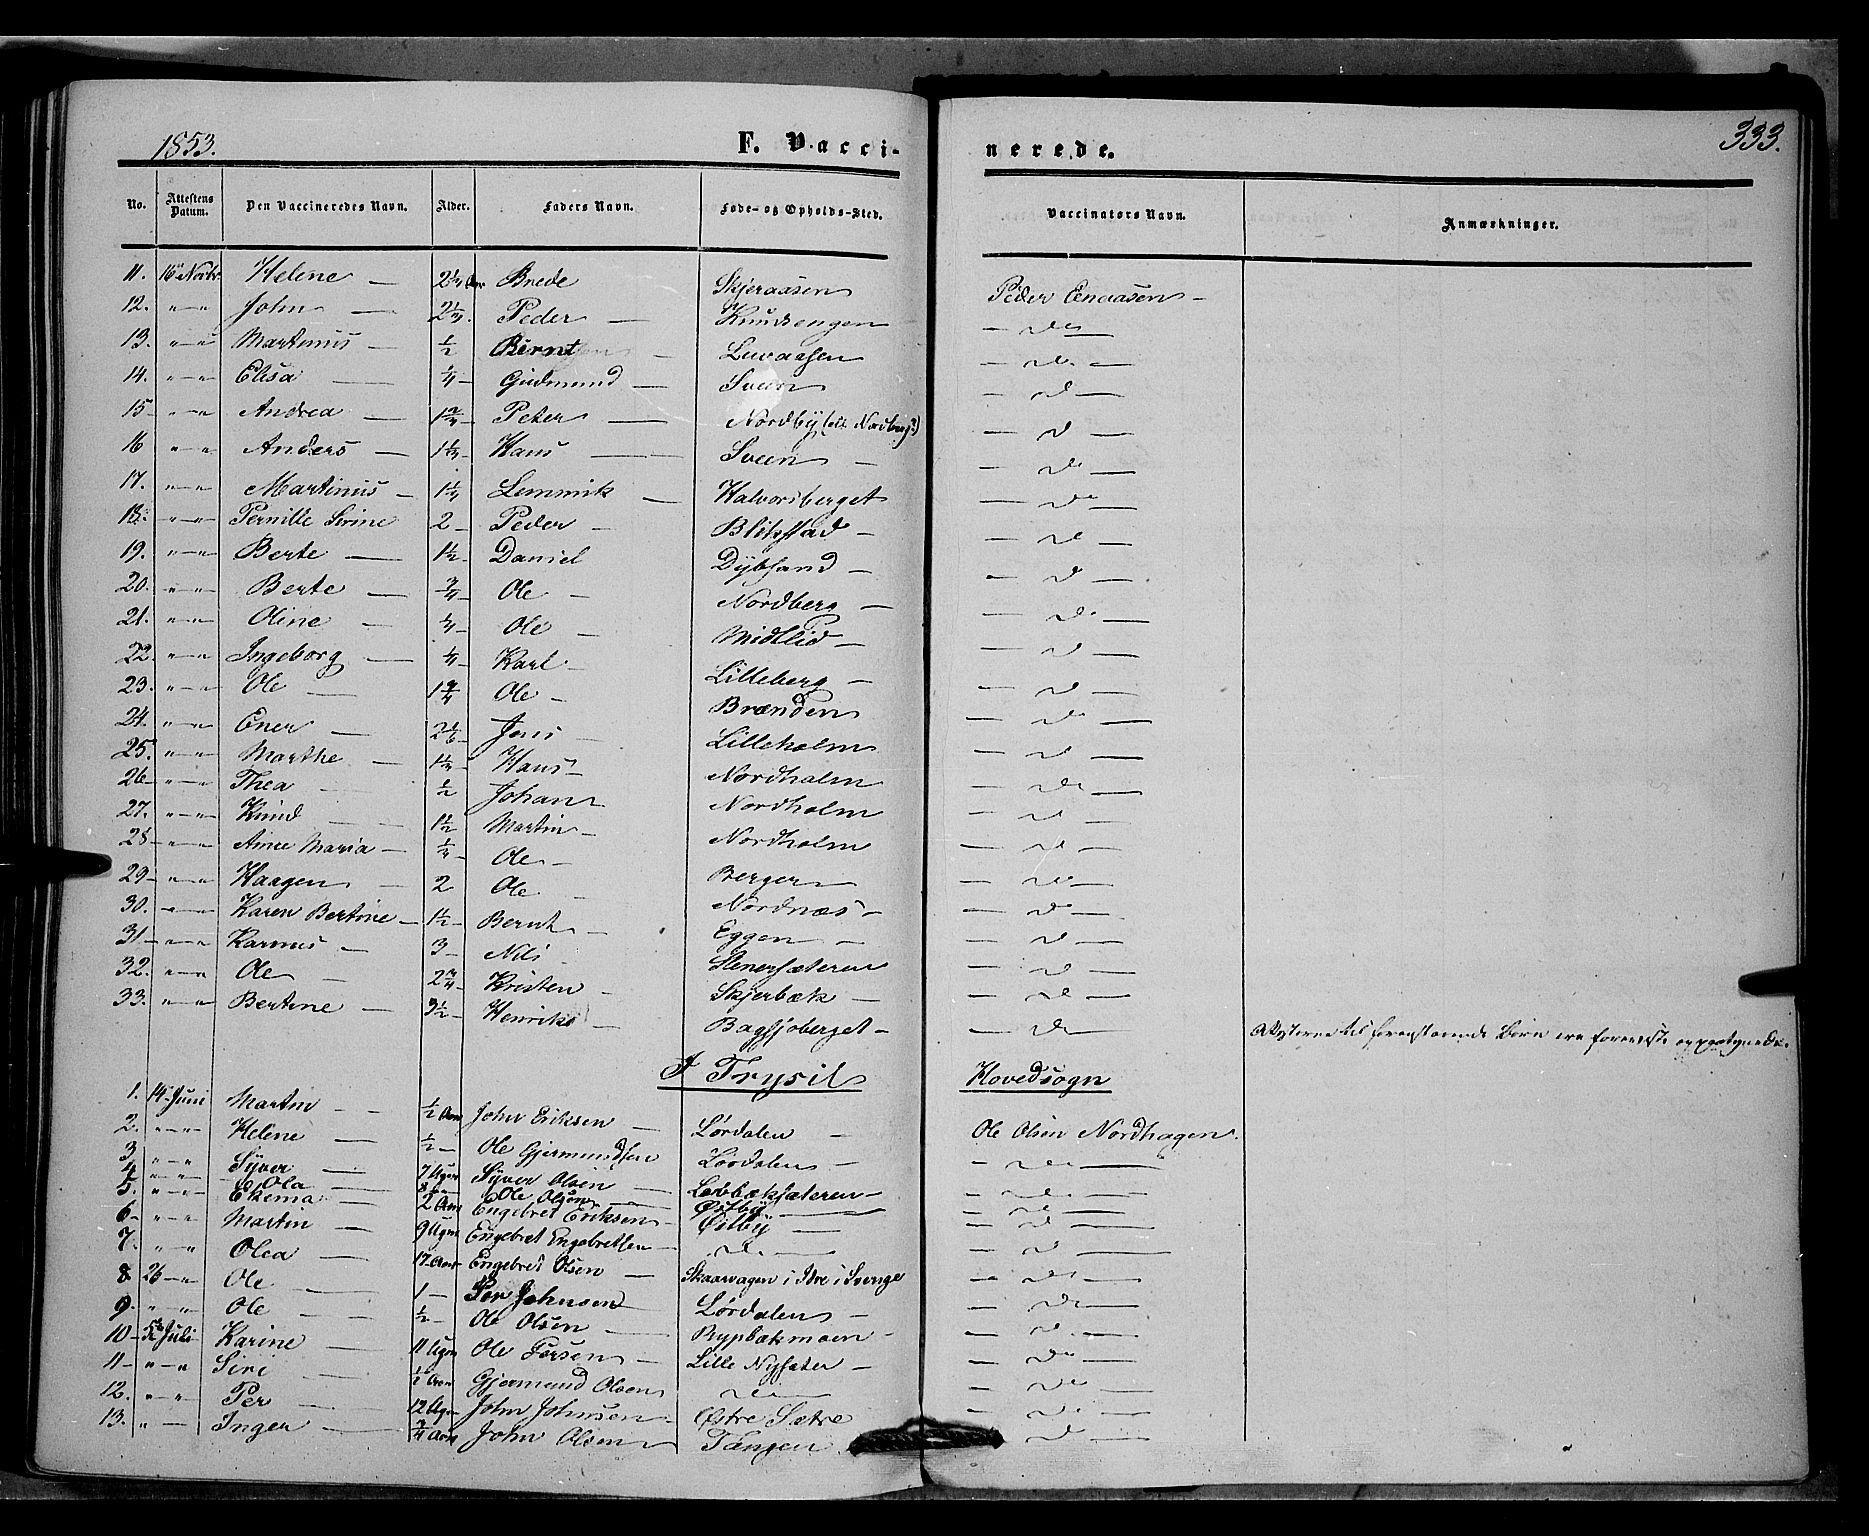 1853. F. Vaccinerede. 333.
No. Attestens Datum. Den Vaccineredes Navn. Alder. Faders Navn. Føde- og Opholds-Sted. Vaccinators Navn. Anmærkninger.
11. 16 Novbr. Helene — 2 1/4 Aar Brede Skjeraasen Peder Enaasen —
12. " — " John — 2 1/4 Peder — Knudsengen — do —
13. " — " Martinus — 1/2 Bernt — Luvaasen — do —
14. " — " Elisa — 1/4 — Gudmund — Sveen — d —
15 — " — " Andrea — 1 3/4 — Peter — Nordby (ell. Nordberg?) — d —
16 " — " Anders — 1 1/4 — Hans — Sveen — — do —
17. " — " Martinus — 1 1/4 Lemmik — Halvorsberget — do —
18. " — " Pernille Serine 2 — Peder — Blikstad — — d —
19. " — " Berte — 1 1/2 — Daniel Dybsand — — d —
20. " — " Berte — 3/4 — Ole — Nordberg — — do —
21. " — " Oline — 1/4 — Ole — Midtlid — — d —
22. " — " Ingeborg — 1/4 — Karl — Lilleberg — — d —
23. " — " Ole — 1 3/4 Ole — Brænden — do —
24. " — " Ener — 2 1/6 — Jens — Lilleholm — d —
25. " — " Marthe — 1 1/4 — Hans — Nordholm — do —
26 — " — " Thea — 1/2 Johan Nordholm — d —
27. " — " Knud — 1 1/2 Martin — Nordholm — d —
28 — " — " Anne Maria — 1/4 — Ole — Berger — do —
29 — " — " Haagen — 2 Ole — Nordnæs — — d —
30. " — " Karen Bertine — 1 1/2 — Bernt — Eggen — — d —
31 — " — " Karinus — 3 — Nils — Stenersæteren — d —
32. " — " Ole — 2 3/4 — Kristen — Skjerbæk — — d —
33. " — " Bertine — 3 1/2 — Henrik — Bagsjøberget — — do — Attesterne til foranstaaende Børn ere foreviste og paategnede.
I Trysil Hovedsogn
1. 14 Juni Martin — 1/2 Aar John Eriksen — Lørdalen — Ole Olsen Nordhagen.
2. " — " Helene — 1/2 — Ole Gjermundsen Lørdalen — — do —
3 " — " Syver — 7 Uger Syver Olsen — Løvbæksæteren — — do —
4 " — " Ola — 8 — Ole Olsen — Østby — — do —
5. " — " Ekema — 2 Aar Engebret Eriksen — Østby — — d —
6 — " — " Martin — 9 Uger Engebret Engebretsen — do — — d —
7. " " Olea — 17 Aar Engebret Olsen — Skaarvagen i Idre i Sverige — do —
8 26 — " Ole — 1 — Per Johnsen Lørdalen — — do —
9. " — " Ole — 1/2 — Ole Olsen — Rypbækmoen — — d —
10 — Juli Karine — 11 Uger Ole Persen — Lille Nysæter — — do —
11 — " — " Siri — 1/2 Aar Gjermund Olsen do — — do —
12. " — " Per — 12 Uger John Johnsen — Østre Sætre — do —
13. " — Inger — 3/4 Aar John Olsen — Tangen — d —